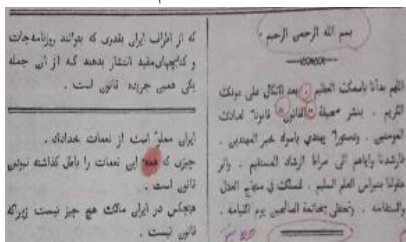 بسم الله الرحمن الرحيم .
اللهم بدأنا باسمك العظيم . بعد اتکال علی عونک
الکریم . بنشر صحیفة « القانون » قانونا لعبادک
المومنین . ودستورا یهتدی باصوله خیر المهتدین .
فارشدنا وایاهم الی صراط الرشاد المستقیم . وانر
عقولنا بنبراس العلم السلیم . لنسلک فی منهاج العدل
والاستقامه . ونحظی بخاتمة الصالحین یوم القیامه .
که از اطراف ایران بقدری که بتوانند روزنامه‌جات
و کتابچهای مفید انتشار بدهند که از آن جمله
یکی همین جریده قانون است .
ایران مملو است از نعمات خداداد .
چیزی که همه این نعمات را باطل گذاشته نبودن
قانون است .
هیچکس در ایران مالک هیچ چیز نیست زیرا که
قانون نیست .